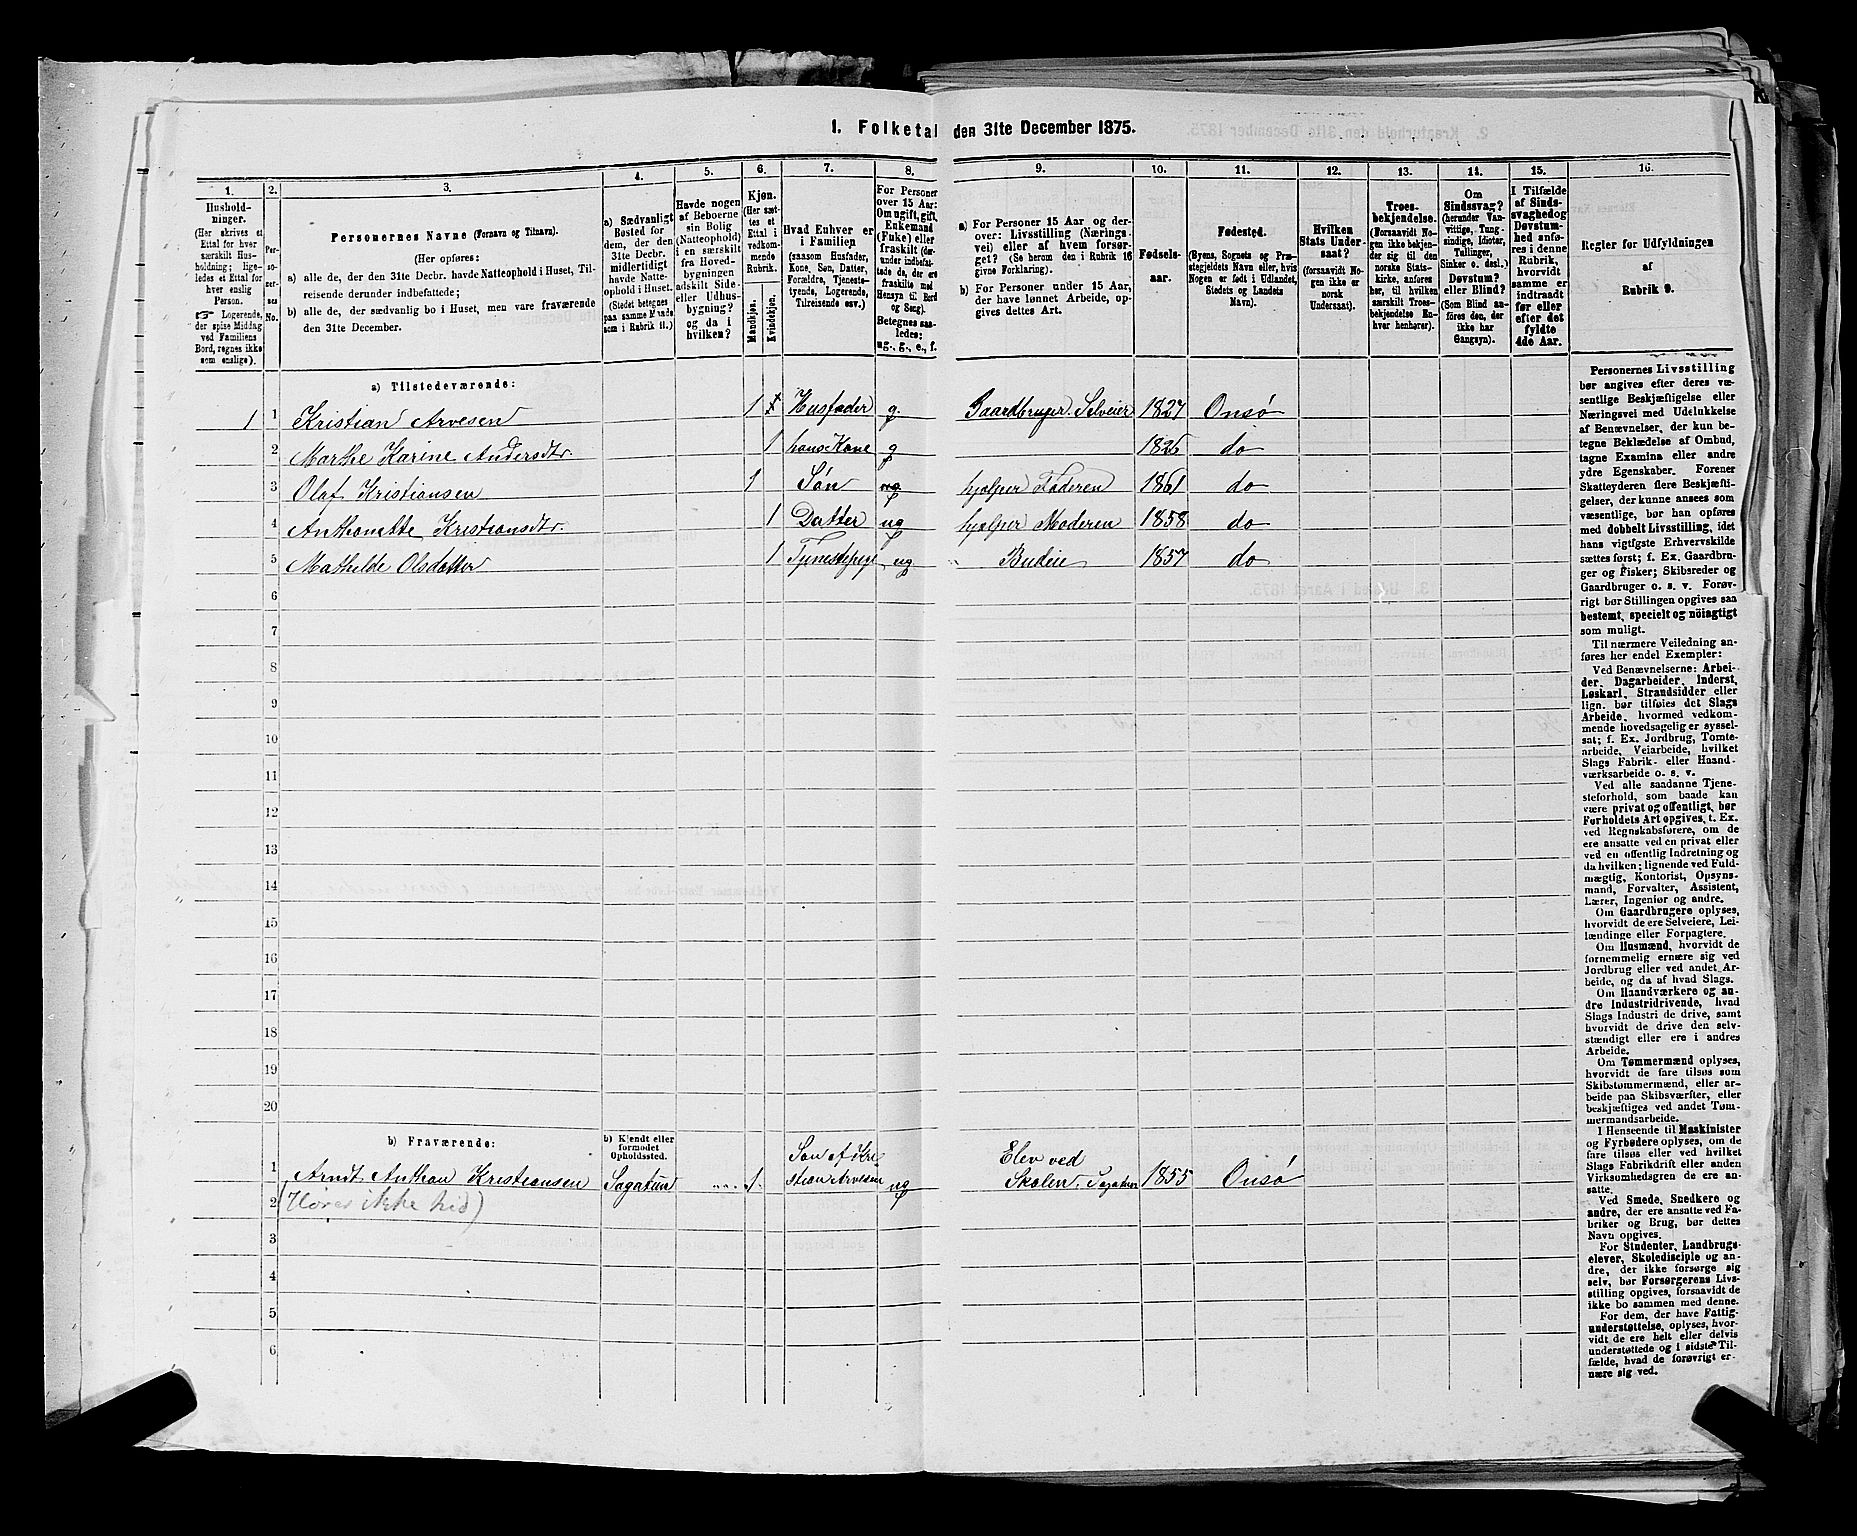 1. Folketal den 31te December 1875.
1. 2. 3. 4. 5. 6. 7. 8. 9. 10. 11. 12. 13. 14. 15. 16.
Hushold-
ninger.
(Her skrives et
Ettal for hver
særskilt Hus-
holdning; lige-
ledes et Ettal for
hver enslig
Person.
☞ Logerende,
der spise Middag
ved Familiens
Bord, regnes ikke
som enslige).
Per-
so-
ner-
nes
No.
Personernes Navne (Fornavn og Tilnavn).
(Her opføres:
a) alle de, der den 31te Decbr. havde Natteophold i Huset, Til-
reisende derunder indbefattede;
b) alle de, der sædvanlig bo i Huset, men vare fraværende
den 31te December.
a) Sædvanligt
Bosted for
dem, der den
31te Decbr.
midlertidigt
havde Natte-
ophold i Huset.
(Stedet betegnes
paa samme Maade
som i Rubrik 11.)
Havde nogen
af Beboerne
sin Bolig
(Natteophold)
i en særskilt
fra Hoved-
bygningen
adskilt Side-
eller Udhus-
bygning?
og da i
hvilken?
Kjøn.
(Her sæt-
tes et
Ettal i
vedkom-
mende
Rubrik.
Mandkjøn.
Kvindekjøn.
Hvad Enhver er
i Familien
(saasom Husfader,
Kone, Søn, Datter,
Forældre, Tjeneste-
tyende, Logerende,
Tilreisende osv.)
For Personer
over 15 Aar:
Om ugift, gift,
Enkemand
(Fuke) eller
fraskilt (der-
under indbefat-
tede de, der ere
fraskilte med
Hensyn til Bord
og Seng).
Betegnes saa-
ledes:
ug., g., e., f.
a) For Personer 15 Aar og der-
over: Livsstilling (Nærings-
vei) eller af hvem forsør-
get? (Se herom den i Rubrik 16
givne Forklaring).
b) For Personer under 15 Aar,
der have lønnet Arbeide, op-
gives dettes Art.
Fødsels-
aar.
Fødested.
(Byens, Sognets og Præ-
stegjeldets Navn eller, hvis
Nogen er født i Udlandet,
Stedets og Landets
Navn).
Hvilken
Stats Under-
saat?
(forsaavidt No-
gen ikke er
norsk
Undersaat).
Troes-
bekjendelse.
(Forsaavidt No-
gen ikke bekjen-
der sig til den
norske Stats-
kirke, anføres
her, til hvilken
særskilt Troes-
bekjendelse En-
hver henhører).
Om
Sindssvag?
(herunder Van-
vittige, Tung-
sindige, Idioter,
Tullinger,
Sinker o. desl.)
Døvstum?
eller Blind?
(Som Blind an-
føres den, der
ikke har
Gangsyn).
I Tilfælde
af Sinds-
svaghed og
Døvstum-
hed anfø-
res i denne
Rubrik,
hvorvidt
samme er
indtraadt
før eller
efter det
fyldte
4de Aar.
Regler for Udfyldningen
af
Rubrik 9.
a) Tilstedeværende:
1 1 Kristian Arvesen 1 Husfader g. Gaardbruger. Selveier 1827 Onsø
2 Marthe Karine Andersdtr. 1 hans Kone g 1826 do
3 Olaf Kristiansen 1 Søn hjælper Faderen 1861 do
4 Anthonette Kristiansdtr. 1 Datter ug hjælper Moderen 1858 do
5 Mathilde Olsdatter 1 Tjenestepige ug Budeie 1857 do
6
7
8
9
10
11
12
13
14
15
16
17
18
19
20
b) Fraværende:
b) Kjendt eller
formodet
Opholdssted.
1 Arndt Anthon Kristiansen Sagatun 1. Søn af Kri-
stian Arvesen ug Elev ved
Skolen, Sagatun 1855 Onsø
2 (Høres ikke hid)
3
4
5
6
Personernes Livsstilling
bør angives efter deres væ-
sentlige Beskjæftigelse eller
Næringsvei med Udelukkelse
af Benævnelser, der kun be-
tegne Beklædelse af Ombud,
tagne Examina eller andre
ydre Egenskaber. Forener
Skatteyderen flere Beskjæfti-
gelser, der kunne ansees som
væsentlige, bør han opføres
med dobbelt Livsstilling, idet
hans vigtigste Erhvervskilde
sættes først; f. Ex. Gaardbru-
ger og Fisker; Skibsreder og
Gaardbruger o. s. v. Forøv-
rigt bør Stillingen opgives saa
bestemt, specielt og nöiagtigt
som muligt.
Til nærmere Veiledning an-
føres her endel Exempler:
Ved Benævnelserne: Arbei-
der, Dagarbeider, Inderst,
Løskarl, Strandsidder eller
lign. bør tilføies det Slags
Arbeide, hvormed vedkom-
mende hovedsagelig er syssel-
sat; f. Ex. Jordbrug, Tomte-
arbeide, Veiarbeide, hvilket
Slags Fabrik- eller Haand-
værksarbeide o. s. v.
Ved alle saadanne Tjene-
steforhold, som baade kan
være privat og offentligt, bør
Forholdets Art opgives, t. Ex.
ved Regnskabsførere, om de
ere ansatte ved en privat eller
ved en offentlig Indretning og
da hvilken; lignende ved Fuld-
mægtig, Kontorist, Opsyns-
mand, Forvalter, Assistent,
Lærer, Ingeniør og andre.
Om Gaardbrugere oplyses,
hvorvidt de ere Selveiere, Lei-
lændinge eller Forpagtere.
Om Husmænd, hvorvidt de
fornemmelig ernære sig ved
Jordbrug eller ved andet Ar-
beide, og da af hvad Slags.
Om Haandværkere og an-
dre Industridrivende, hvad
Slags Industri de drive, samt
hvorvidt de drive den selv-
stændigt eller ere i andres
Arbeide.
Om Tømmermænd oplyses,
hvorvidt de fare tilsøs som
Skibstømmermænd, eller ar-
beide paa Skibsværfter, eller
beskjæftiges ved andet Tøm-
mermandsarbeide.
I Henseende til Maskinister
og Fyrbødere oplyses, om de
fare tilsøs eller ved hvilket
Slags Fabrikdrift eller anden
Virksomhedsgren de ere an-
satte.
Ved Smede, Snedkere og
andre, der ere ansatte ved Fa-
briker og Brug, bør dettes
Navn opgives.
For Studenter, Landbrugs-
elever, Skoledisciple og an-
dre, der ikke forsørge sig
selv, bør Forsørgerens Livs-
stilling opgives, forsaavidt de
ikke bo sammen med denne.
For dem, der have Fattig-
understøttelse, oplyses, hvor-
vidt de ere helt eller delvis
understøttede og i sidste Til-
fælde, hvad de forøvrigt er-
nære sig ved.